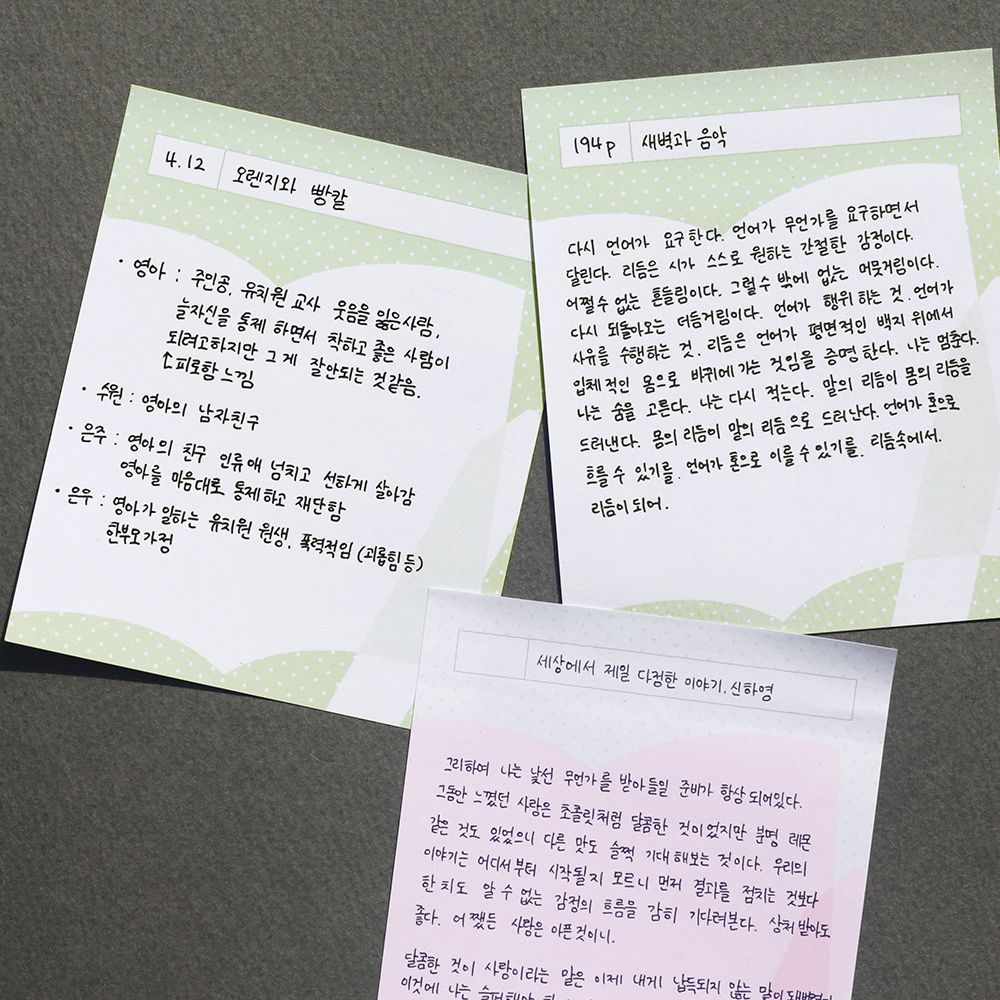 4.12 오렌지와 빵칼
· 영아 : 주인공, 유치원 교사 웃음을 잃은사람,
늘자신을 통제 하면서 착하고 좋은 사람이
되려고하지만 그게 잘안되는 것같음.
↳피로함느낌
· 수원 : 영아의 남자친구
· 은주 : 영아의 친구 인류애 넘치고 선하게 살아감
영아를 마음대로 통제하고 재단함
· 은우 : 영아가 일하는 유치원 원생, 폭력적임 (괴롭힘 등)
한부모가정
194p 새벽과 음악
다시 언어가 요구한다. 언어가 무언가를 요구하면서
달린다. 리듬은 시가 스스로 원하는 간절한 감정이다.
어쩔수 없는 흔들림이다. 그럴수 밖에 없는 머뭇거림이다.
다시 되돌아오는 더듬거림이다. 언어가 행위 하는 것. 언어가
사유를 수행하는 것. 리듬은 언어가 평면적인 백지 위에서
입체적인 몸으로 바뀌에 가는 것임을 증명 한다. 나는 멈춘다.
나는 숨을 고른다. 나는 다시 적는다. 말의 리듬이 몸의 리듬을
드러낸다. 몸의 리듬이 말의 리듬 으로 드러난다. 언어가 혼으로
흐를 수 있기를. 언어가 혼으로 이를 수 있기를. 리듬속에서.
리듬이 되어.
세상에서 제일 다정한 이야기. 신하영
그리하여 나는 낯선 무언가를 받아들일 준비가 항상 되어있다.
그동안 느꼈던 사랑은 초콜릿처럼 달콤한 것이었지만 분명 레몬
같은 것도 있었으니 다른 맛도 슬쩍 기대해보는 것이다. 우리의
이야기는 어디서부터 시작될지 모르니 먼저 결과를 점치는 것보다
한치도 알 수 없는 감정의 흐름을 감히 기다려본다. 상처 받아도
좋다. 어쨌든 사랑은 아픈것이니.
달콤한 것이 사랑이라는 말은 이제 내게 납득되지 않는 말이
이것에 나는